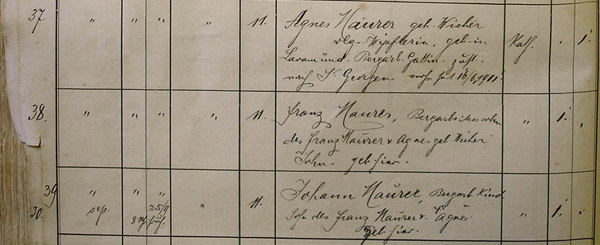 37. " " " " 11. Agnes Maurer geb. Wieser
vlg. Wipflerin. geb. in Kath. " 1.
Lavamünd. Bergarb. Gattin. zust.
nach St Georgen.
38. " " " " 11. Franz Maurer, Bergarbeiterssohn " 1. "
des Franz Maurer & Agnes geb. Wieser
Sohn. geb. hier.
39 " " " 11. Johann Maurer, Bergarb. Kind " 1. "
30. sep. Sohn des Franz Maurer & Agnes
geb. hier.